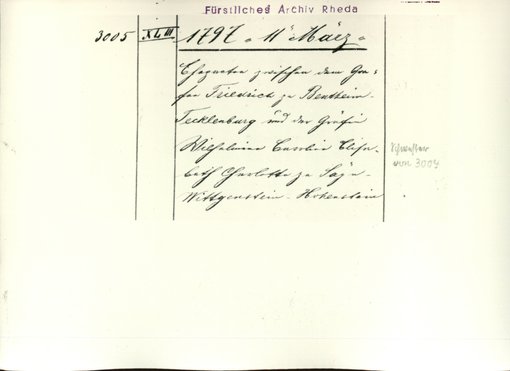 Fürstliches Archiv Rheda
3005 XLIII 1797 11 März
Ehepacten zwischen dem Gra-
fen Friedrich zu Bentheim-
Tecklenburg und der Gräfin
Wilhelmine Caroline Elisa-
beth Charlotte zu Sayn-
Wittgenstein-Hohenstein
von 3007